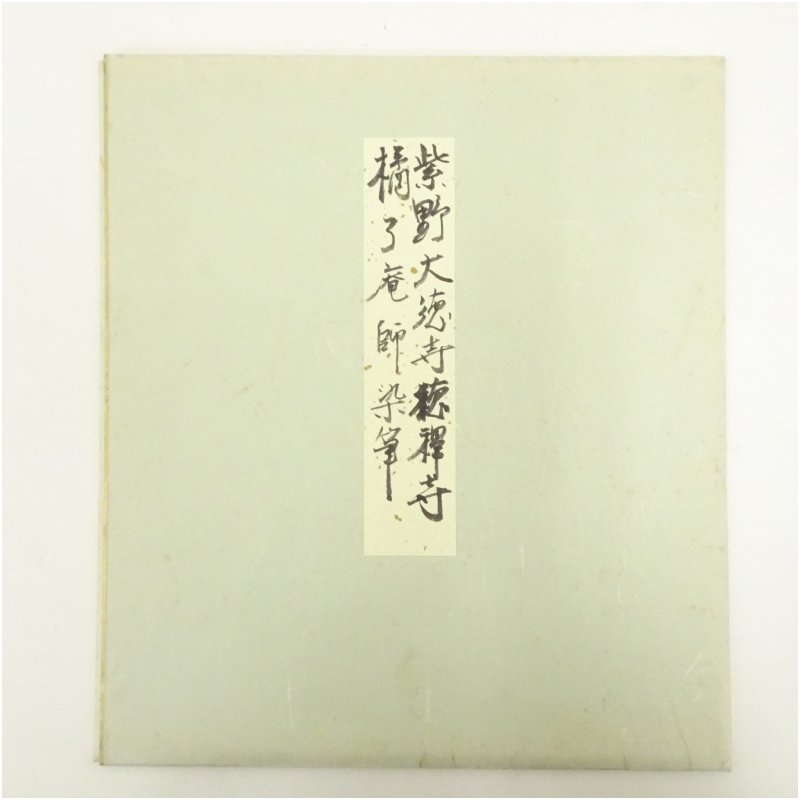 紫野大徳寺徳禅寺
橘了庵師染筆